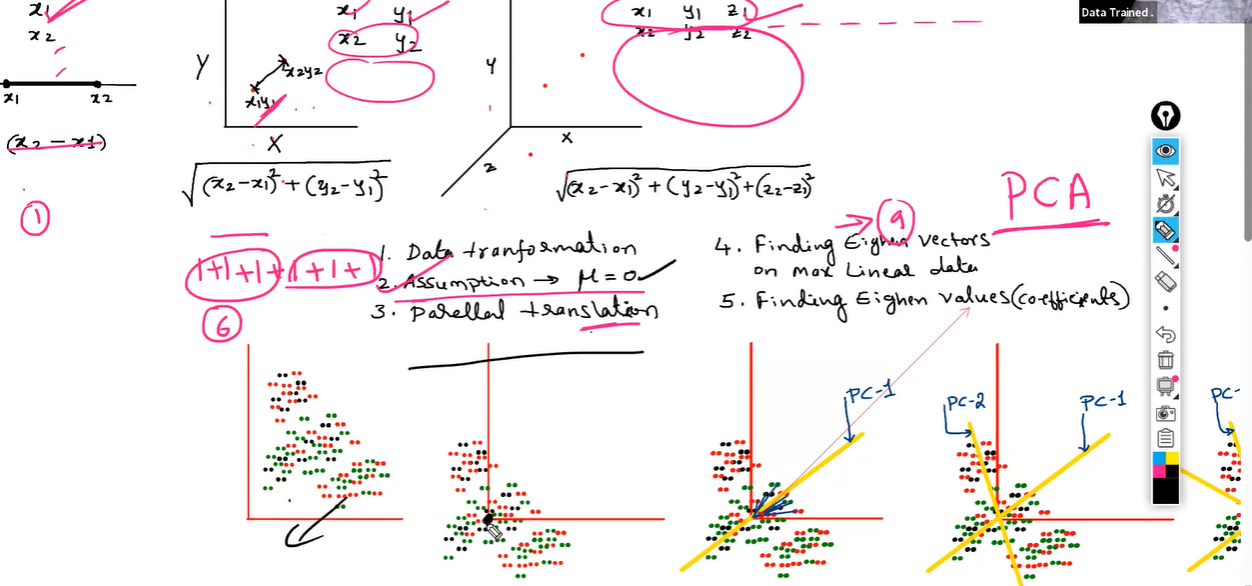 Data Trained .
x1
x2
x1 x2
(x2 - x1)
1
Y
x1 y1
x2 y2
x1y1
x2y2
X
√(x2-x1)² + (y2-y1)²
Y
X
z
x1 y1 z1
x2 y2 z2
√(x2-x1)² + (y2-y1)² + (z2-z1)²
PCA
1+1+1+1+1+1
6
1. Data tranformation
2. Assumption → μ = 0
3. Parellal translation
9
4. Finding Eighen vectors
on max Linear data
5. Finding Eighen values (coefficients)
PC-1
PC-2
PC-1
PC-